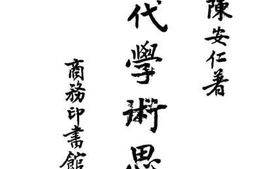 陳安仁著
代學術思
商務印書館